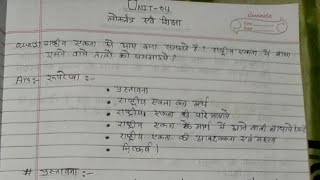 UNIT-04
लोकतंत्र एवं शिक्षा
Ques: राष्ट्रीय एकता से आप क्या समझते हैं? राष्ट्रीय एकता में बाधा
वाले तत्वों को समझाइये।
Ans:- रूपरेखा :-
• प्रस्तावना
• राष्ट्रीय एकता का अर्थ
• राष्ट्रीय एकता की परिभाषायें
• राष्ट्रीय एकता के मार्ग में आने वाली बाधायें
• राष्ट्रीय एकता की आवश्यकता एवं महत्व
• निष्कर्ष।
# प्रस्तावना :-